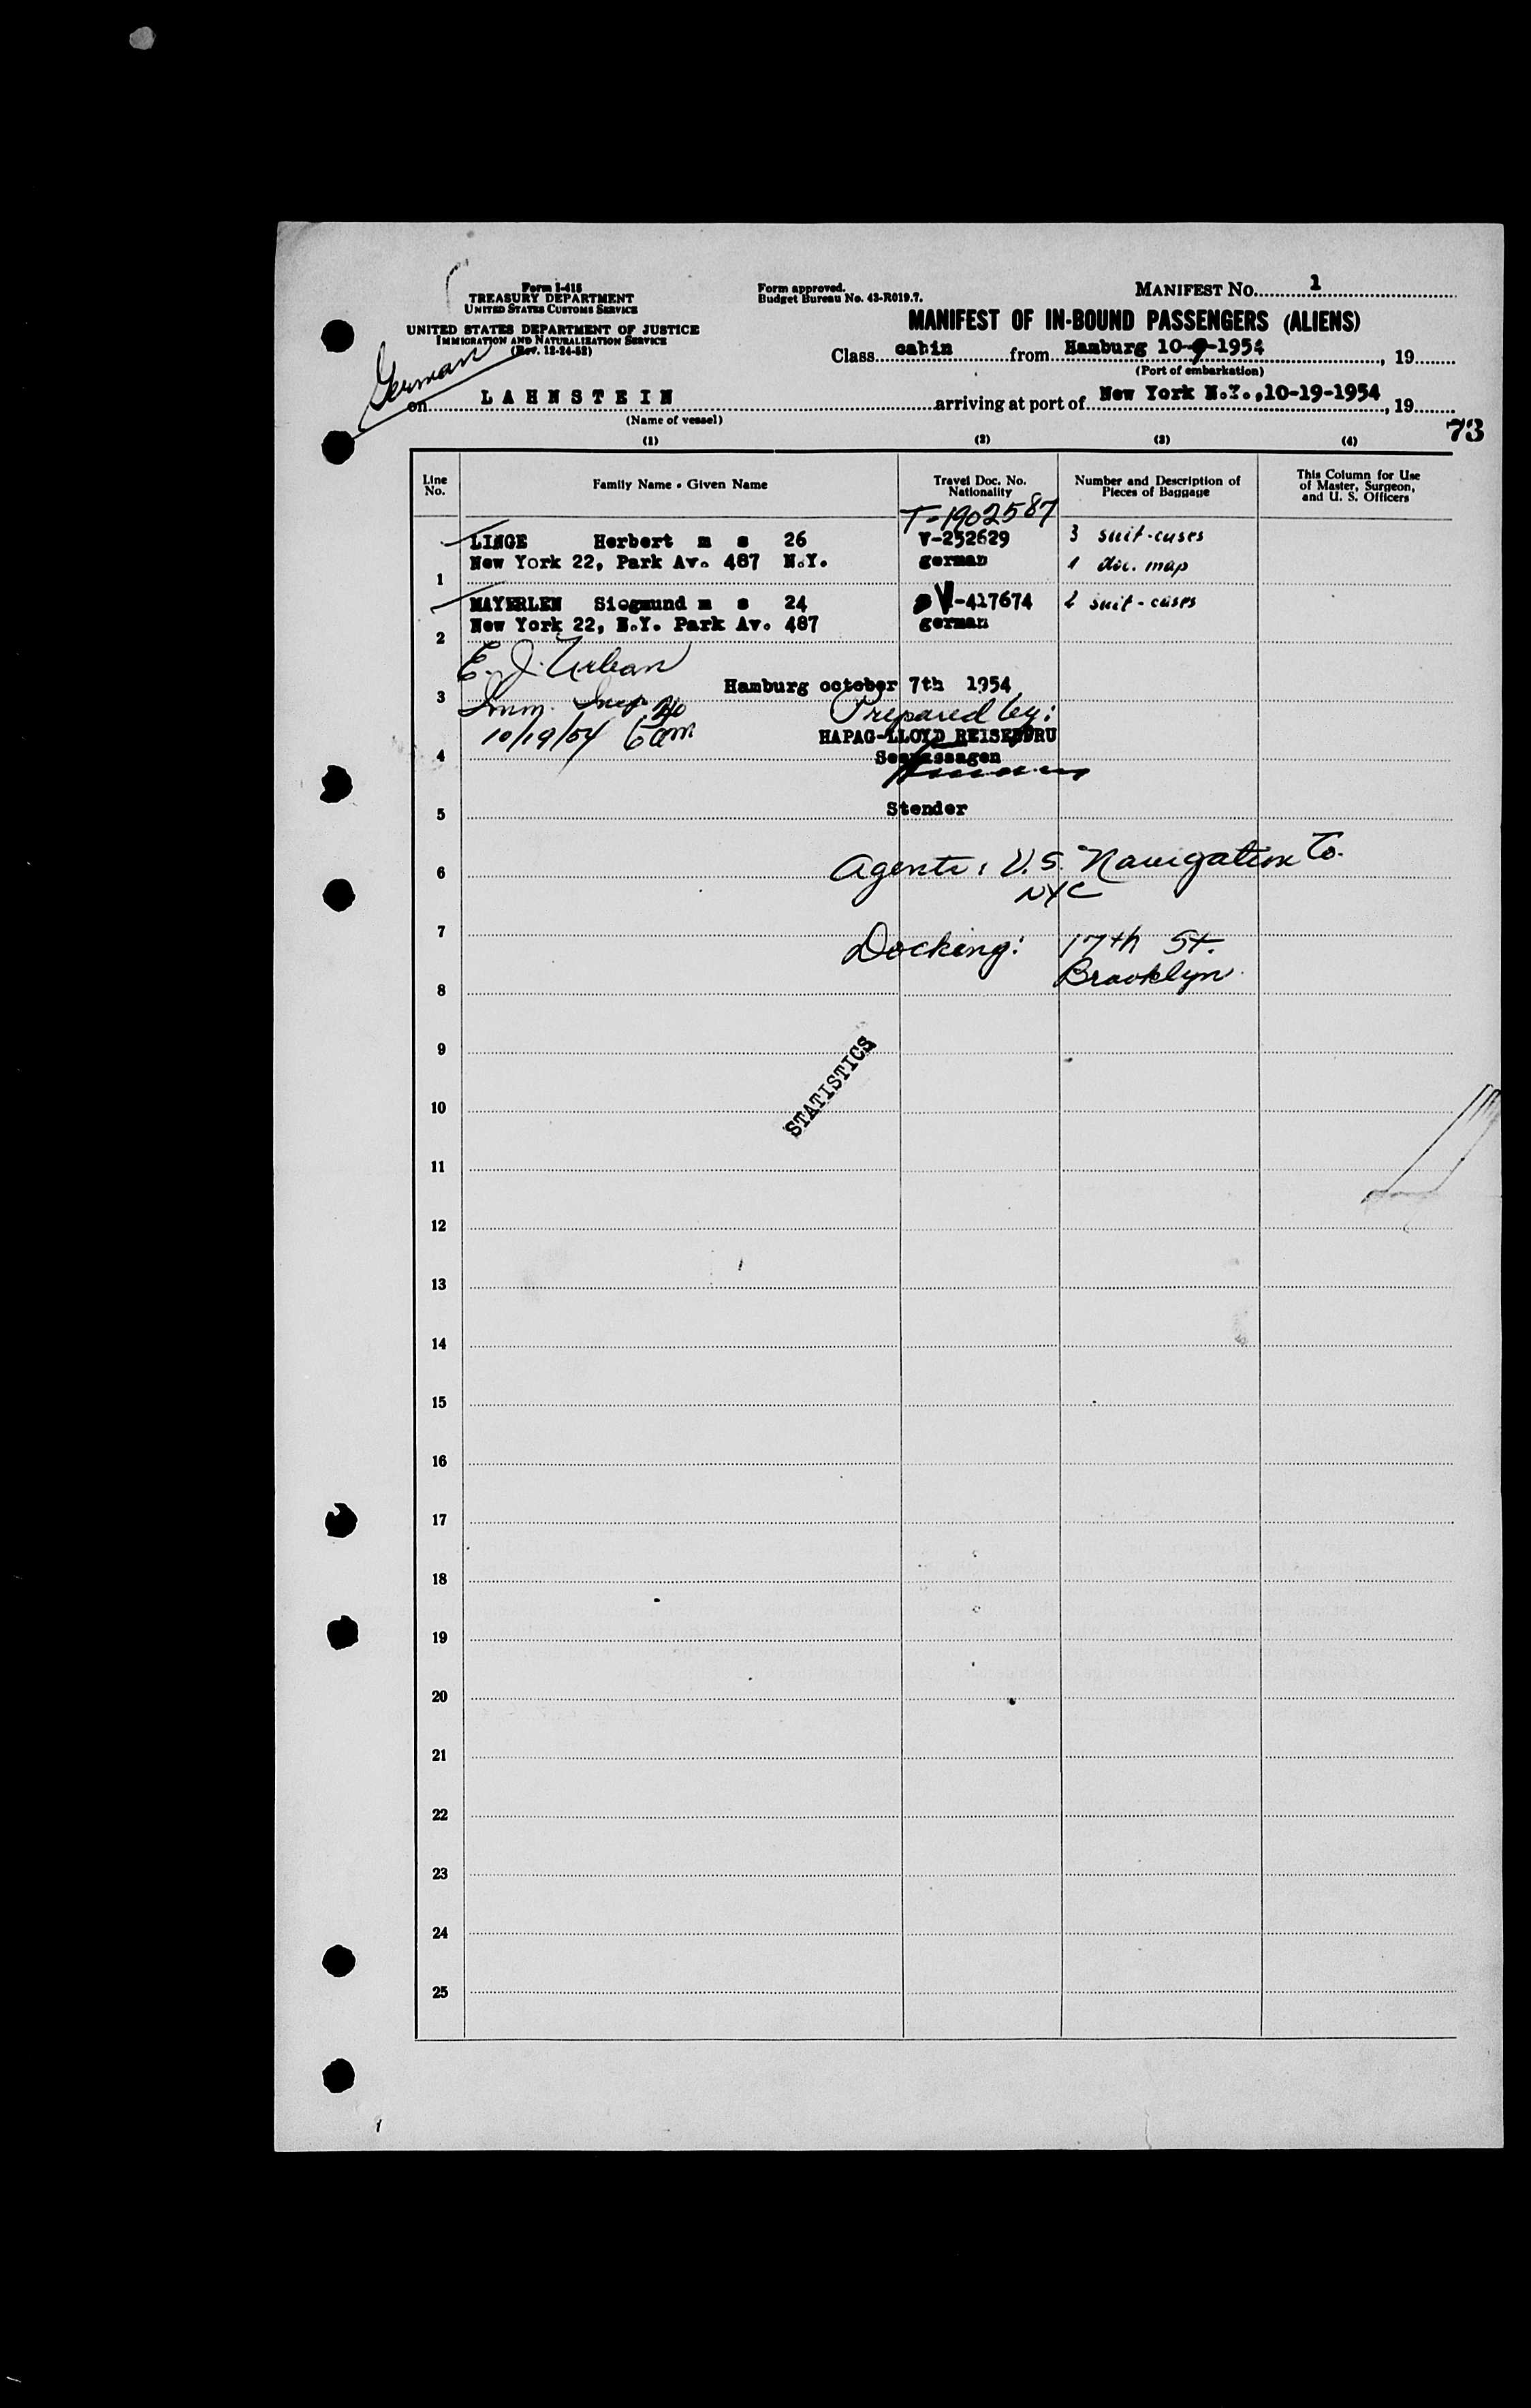 Form I-418
TREASURY DEPARTMENT
UNITED STATES CUSTOMS SERVICE
UNITED STATES DEPARTMENT OF JUSTICE
IMMIGRATION AND NATURALIZATION SERVICE
(Rev. 12-24-52)
German
Form approved.
Budget Bureau No. 43-R019.7.
MANIFEST NO. 1
MANIFEST OF IN-BOUND PASSENGERS (ALIENS)
Class cabin from Hamburg 10-9-1954, 19
(Port of embarkation)
on LAHNSTEIN arriving at port of New York N.Y., 10-19-1954, 19
(Name of vessel)
73
(1) (2) (3) (4)
Line No. Family Name - Given Name Travel Doc. No. Nationality Number and Description of Pieces of Baggage This Column for Use of Master, Surgeon, and U. S. Officers
T-1902587
LINGE Herbert m s 26 V-252629 3 suit-cases
1 New York 22, Park Av. 487 N.Y. german 1 doc. map
MAYERLEN Siegmund m s 24 V-417674 2 suit-cases
2 New York 22, N.Y. Park Av. 487 german
E. J. Urban
Hamburg october 7th 1954
3 Imm. Insp. Prepared by:
10/19/54 6 am HAPAG-LLOYD REISEBÜRU
4 Seepassagen
5 Stender
6 Agents: U.S. Navigation Co.
NYC
7 Docking: 17th St.
8 Brooklyn
9
STATISTICS
10
11
12
13
14
15
16
17
18
19
20
21
22
23
24
25